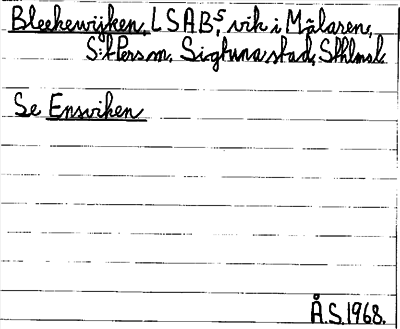 Bleekewijken, LSAB⁵, vik i Mälaren,
S:t Pers sn, Sigtuna stad, Sthlms l.
Se Ensviken
Å.S. 1968.